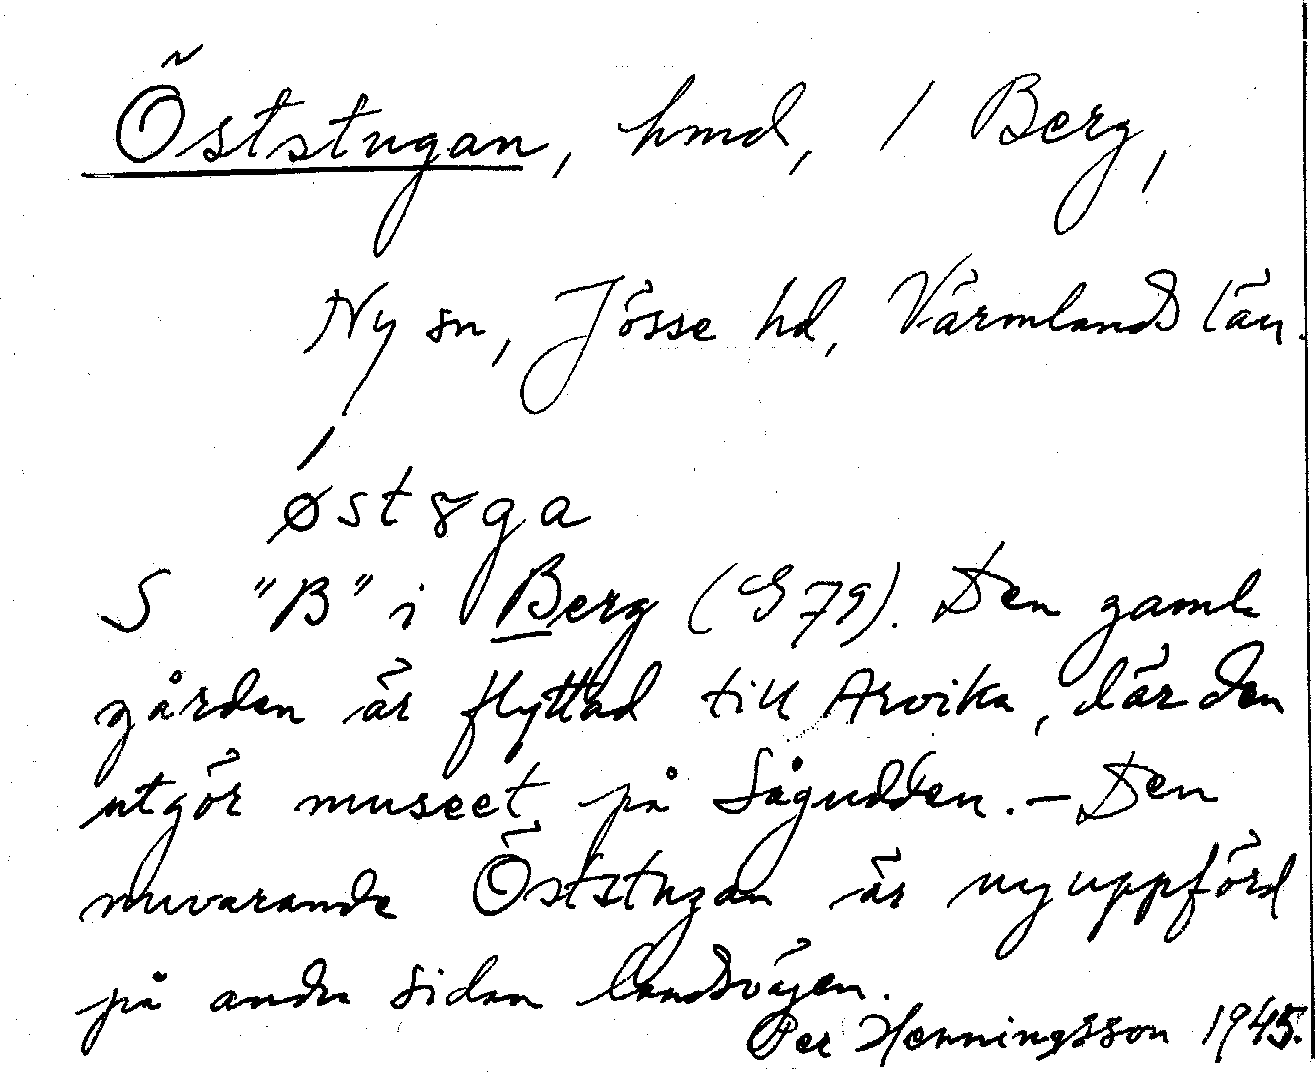 Öststugan, hmd, / Berg,
Ny sn, Jösse hd, Värmlands län.
́østȣga
S "B" i Berg (G79). Den gamla
gården är flyttad till Arvika, där den
utgör museet på Sågudden. – Den
nuvarande Öststugan är nyuppförd
på andra sidan landsvägen.
Per Henningsson 1945.